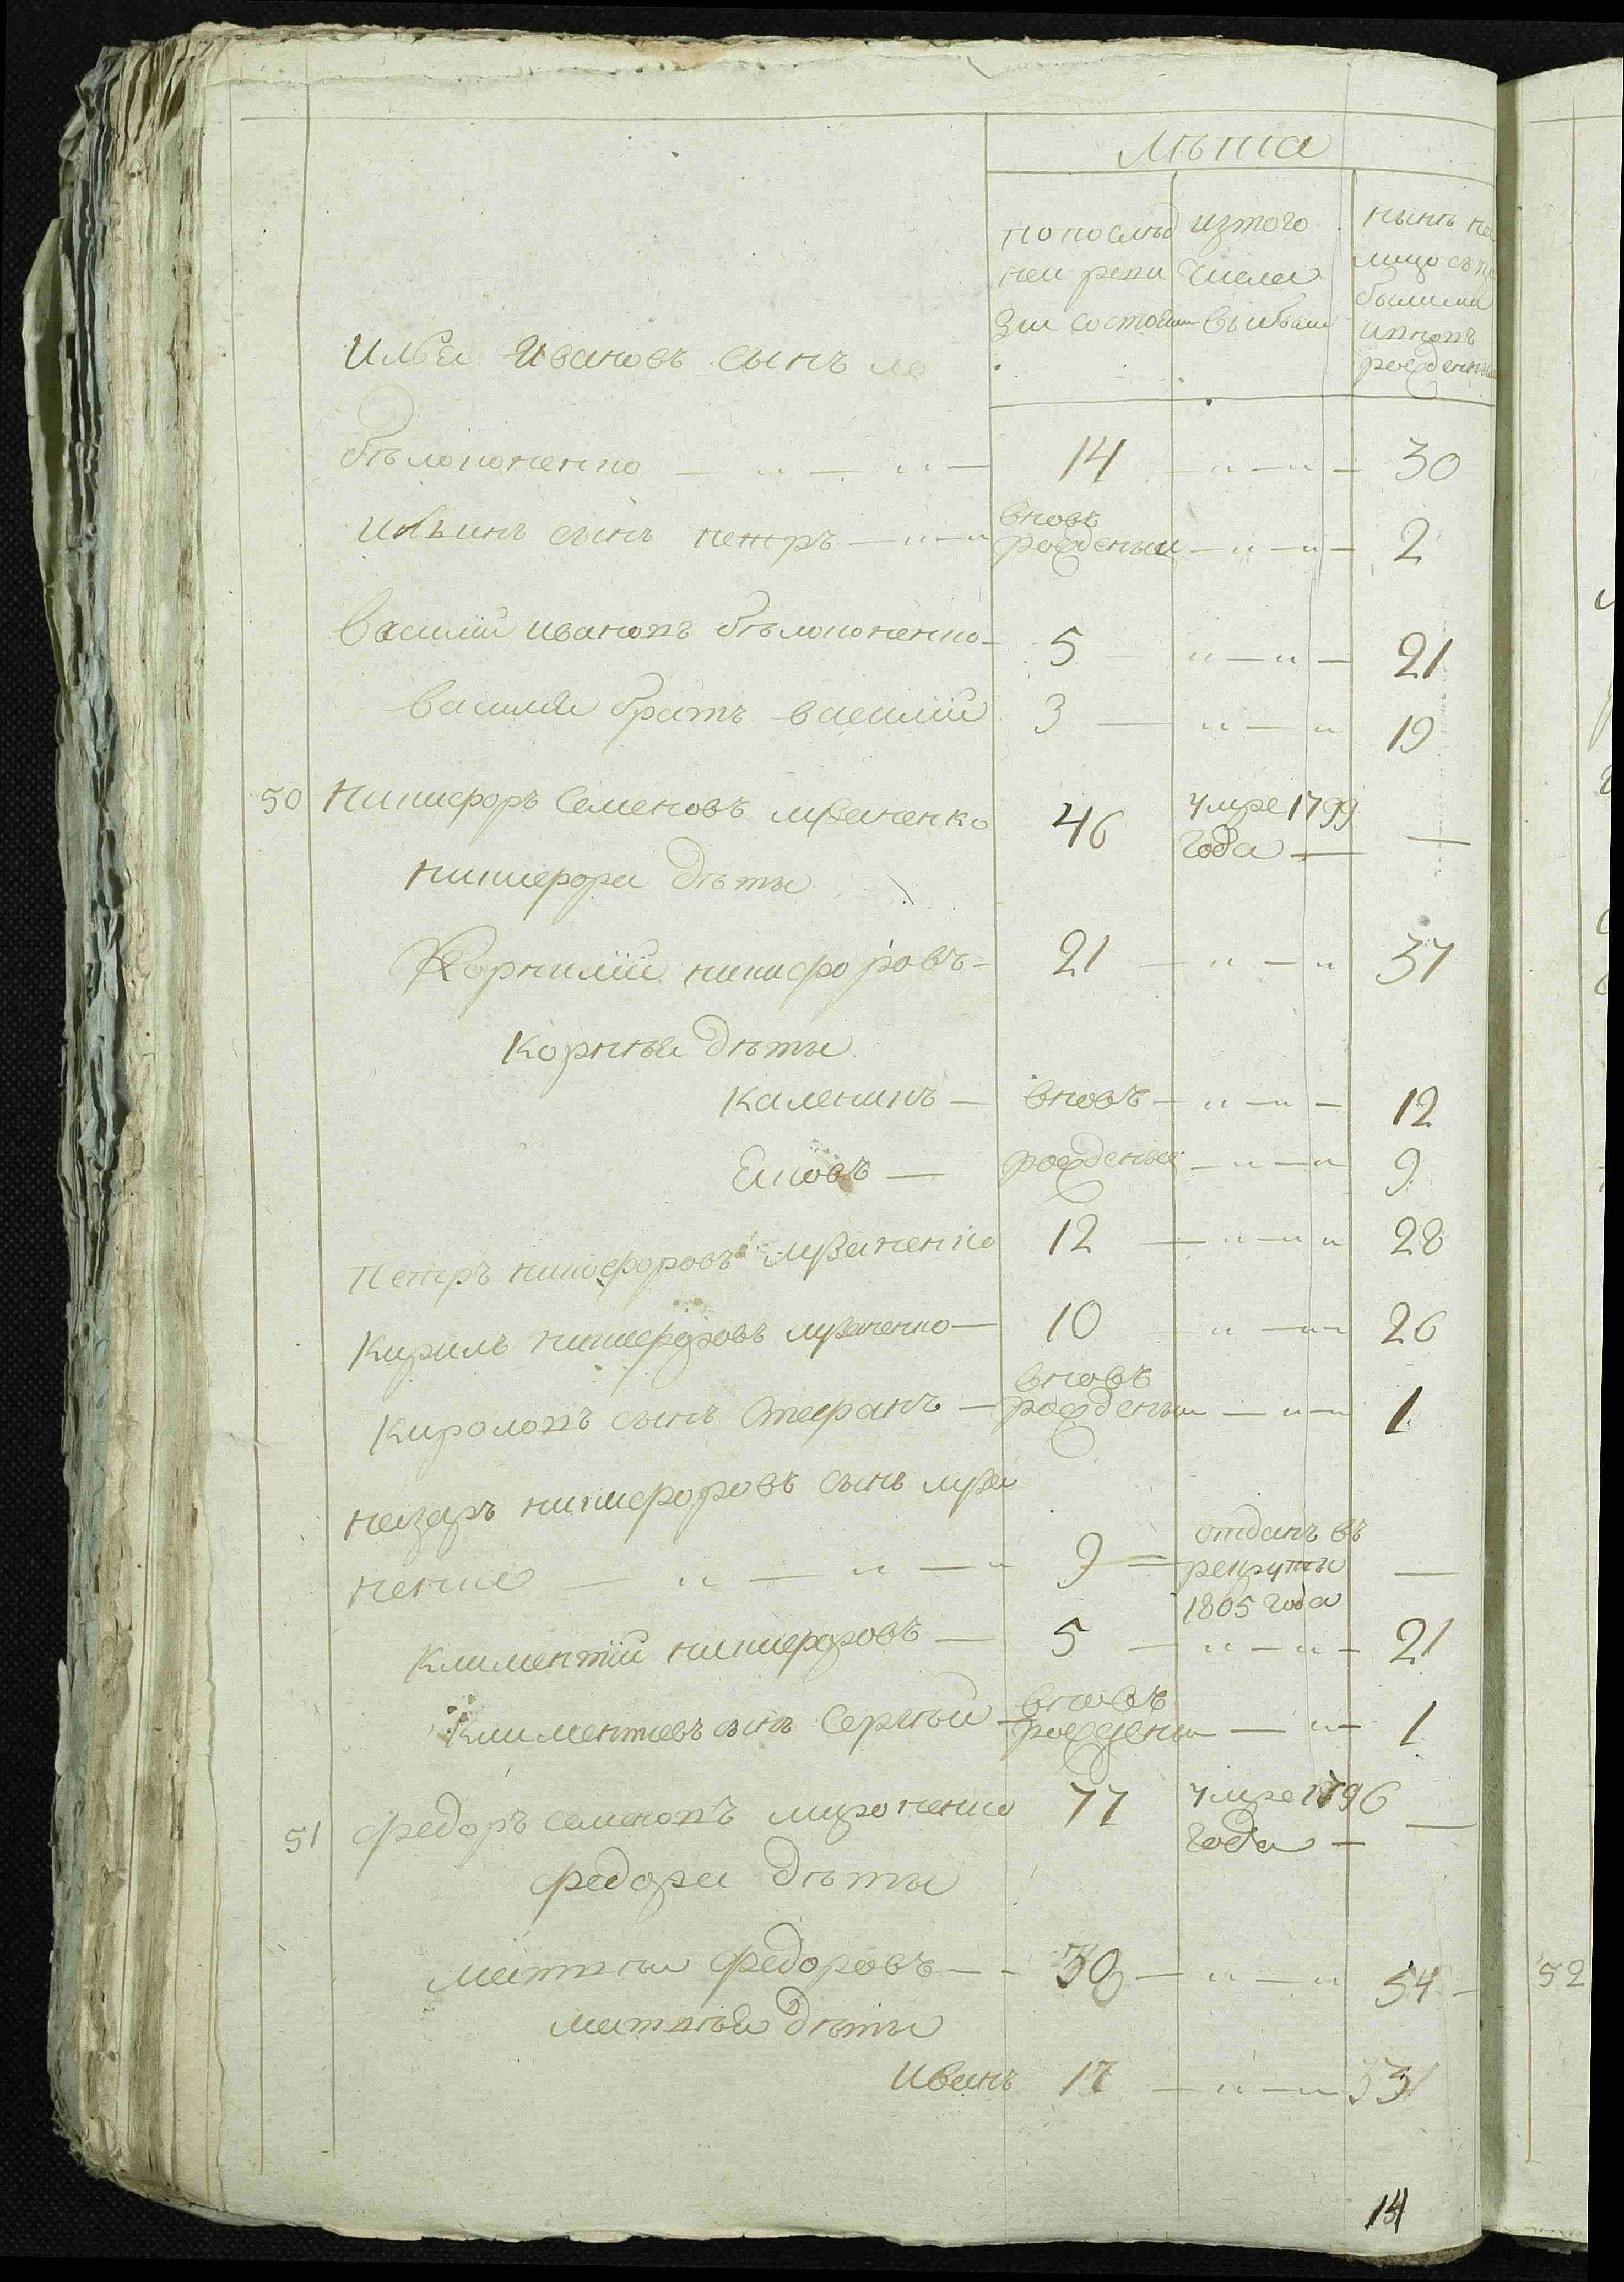 лѣта
попослѣд изтого нынѣ на
неи реви числа лицо съ при
зіи состояли выбыли былими
ивновъ
рожденны
Илья Ивановъ сынъ
бѣлоконенко — „ — „ — 14 — „ — „ — 30
Ильинъ сынъ петръ — „ — „ вновь рожденыи — „ — „ — 2
Василій ивановъ бѣлоконенко — 5 — „ — „ — 21
василія братъ василій 3 — „ — „ 19
50 Никифоръ Семеновъ лузаненко 46 умре 1799 года — —
никифора дѣты
Корнилій никифоровъ — 21 — „ — „ 37
Корнѣя дѣты
Каленикъ — вновъ — „ — „ — 12
Яковъ — рожденыи — „ — „ 9
Петръ никифоровъ лузаненко 12 — „ — „ 28
Кирилъ никифоровъ лузаненко — 10 — „ — „ 26
Кириловъ сынъ Стефанъ — вновъ рожденыи — „ — „ 1
назаръ никифоровъ сынъ луза
ненко — „ — „ — „ 9 — отданъ въ рекруты 1805 года —
Климентій никифоровъ — 5 — „ — „ — 21
Климентіевъ сынъ Сергѣй — вновъ рожденыи — „ — 1
51 федоръ семеновъ мироненко 77 умре 1796 года — —
федора дѣты
матвѣи федоровъ — 38 — „ — „ 54 —
матвѣя дѣты
Иванъ 17 — „ — „ 33
52
14